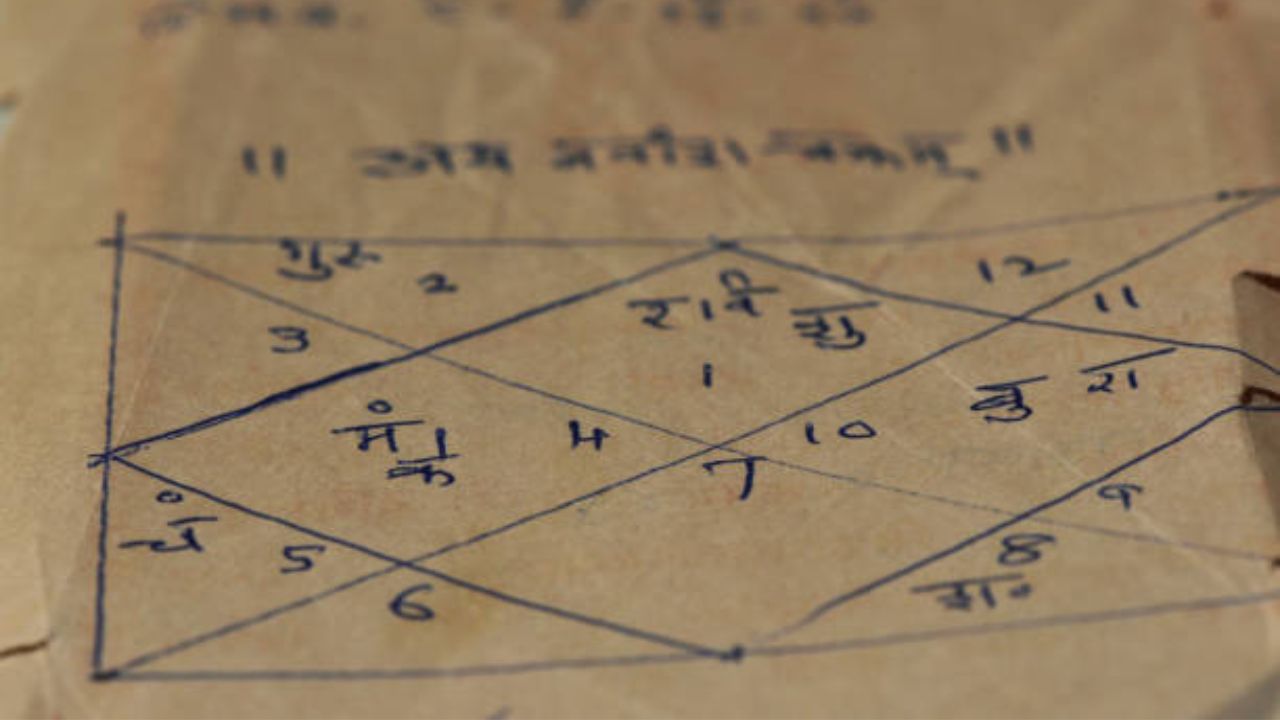 ॥ अथ चक्रम् ॥
गुरु 2 12
रवि शु 11
3 1 बु रा
मं 4 10
के 7
चं 5 9
6 8
श॰